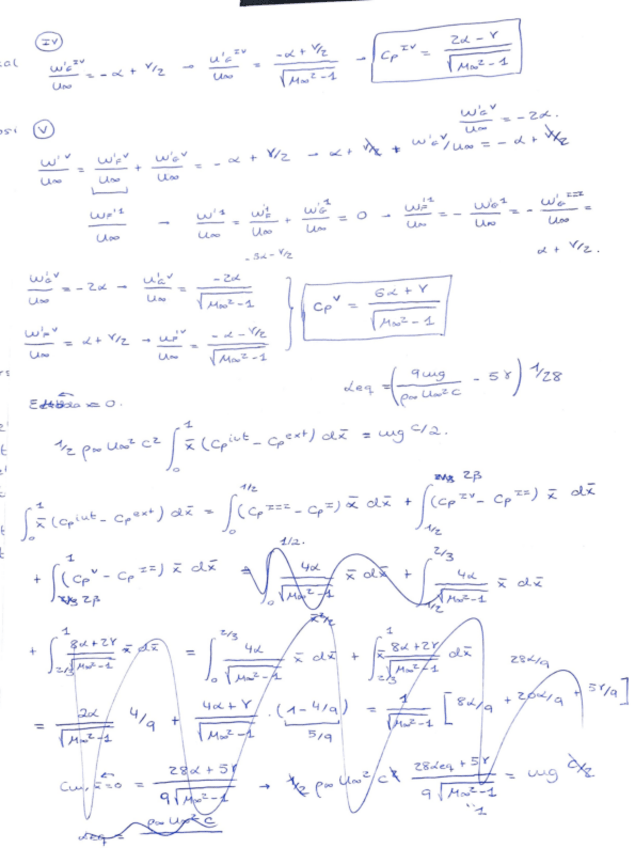 IV
w'_G^IV/u∞ = -α + γ/2 → u'_G^IV/u∞ = (-α + γ/2)/√(M∞²-1) → Cp^IV = (2α - γ)/√(M∞²-1)
V
w'_G^V/u∞ = -2α.
w'^V/u∞ = w'_F^V/u∞ + w'_G^V/u∞ = -α + γ/2 → α + γ/2 + w'_G^V/u∞ = -α + γ/2
w'_F^1/u∞ → w'^1/u∞ = w'_F^1/u∞ + w'_G^1/u∞ = 0 → w'_F^1/u∞ = - w'_G^1/u∞ = - w'_G^III/u∞ =
α + γ/2.
-3α-γ/2
w'_G^V/u∞ = -2α → u'_G^V/u∞ = -2α/√(M∞²-1)
Cp^V = (6α + γ)/√(M∞²-1)
w'_F^V/u∞ = α + γ/2 → u'_F^V/u∞ = (-α - γ/2)/√(M∞²-1)
αeq = (9mg/(ρ∞ u∞² c) - 5γ) 1/28
= 0.
1/2 ρ∞ u∞² c² ∫₀¹ x̄ (Cp^int - Cp^ext) dx̄ = mg c/2.
∫₀¹ x̄ (Cp^int - Cp^ext) dx̄ = ∫₀^1/2 (Cp^III - Cp^I) x̄ dx̄ + ∫_1/2^2/3 (Cp^IV - Cp^II) x̄ dx̄
+ ∫_2/3^1 (Cp^V - Cp^II) x̄ dx̄ = ∫₀^1/2 4α/√(M∞²-1) x̄ dx̄ + ∫_1/2^2/3 4α/√(M∞²-1) x̄ dx̄
+ ∫_2/3^1 (8α+2γ)/√(M∞²-1) x̄ dx̄ = ∫₀^2/3 4α/√(M∞²-1) x̄ dx̄ + ∫_2/3^1 x̄ (8α+2γ)/√(M∞²-1) dx̄
28α/9
= 2α/√(M∞²-1) 4/9 + (4α+γ)/√(M∞²-1) · (1-4/9) = 1/√(M∞²-1) [8α/9 + 20α/9 + 5γ/9]
5/9
Cm, x̄=0 = (28α + 5γ)/(9√(M∞²-1)) → 1/2 ρ∞ u∞² c² (28αeq + 5γ)/(9√(M∞²-1)) = mg c/2
"1
αeq = ρ∞ u∞² c